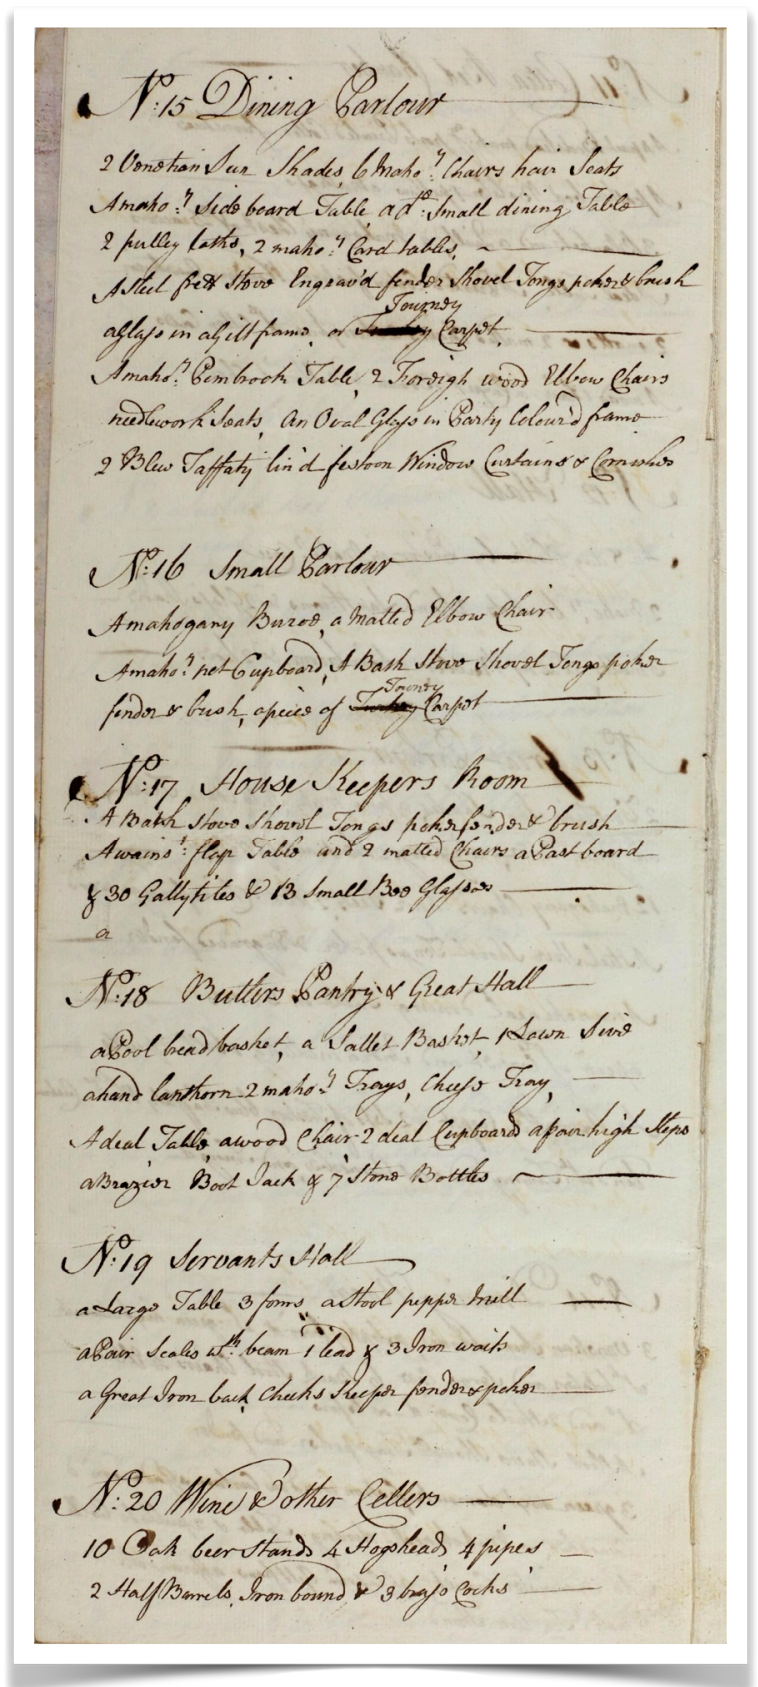 No: 15 Dining Parlour
2 Venetian Sun Shades, 6 maho:y Chairs hair Seats
A maho:y Side board Table, a do: Small dining Table
2 pulley laths, 2 maho:y Card tables,
A Steel frett Stove Engrav'd fender Shovel Tongs poker & brush
Tourney
a Glass in a Gilt frame, or Turkey Carpet
A maho:y Pembrook Table, 2 Foreigh wood Elbow Chairs
needlework Seats, An Oval Glass in Party Colour'd frame
2 Blew Taffaty lin'd festoon Window Curtains & Cornishes
No: 16 Small Parlour
A mahogany Buroe, a Matted Elbow Chair
A maho:y net Cupboard, A Bath Stove Shovel Tongs poker
Tourney
fender & brush, a peice of Turkey Carpet
No: 17 House Keepers Room
A Bath Stove Shovel Tongs poker fender & brush
A wains:t flap Table and 2 matted Chairs a Past board
& 30 Gallytiles & 13 Small Bee Glasses
a
No: 18 Butlers Pantry & Great Hall
a Pool bread basket, a Sallet Basket, 1 Lawn Sive
a hand lanthorn 2 maho:y Trays, Cheese Tray,
A deal Table, a wood Chair 2 deal Cupboard a pair high Steps
a Brazier Boot Jack & 7 Stone Bottles
No: 19 Servants Hall
a Large Table 3 forms, a Stool pepper mill
a Pair Scales wth: beam 1 lead & 3 Iron waits
a Great Iron back, Cheeks Keeper fender & poker
No: 20 Wine & other Cellers
10 Oak beer Stands 4 Hogsheads, 4 pipes
2 Half Barrels, Iron bound, & 3 brass Cocks